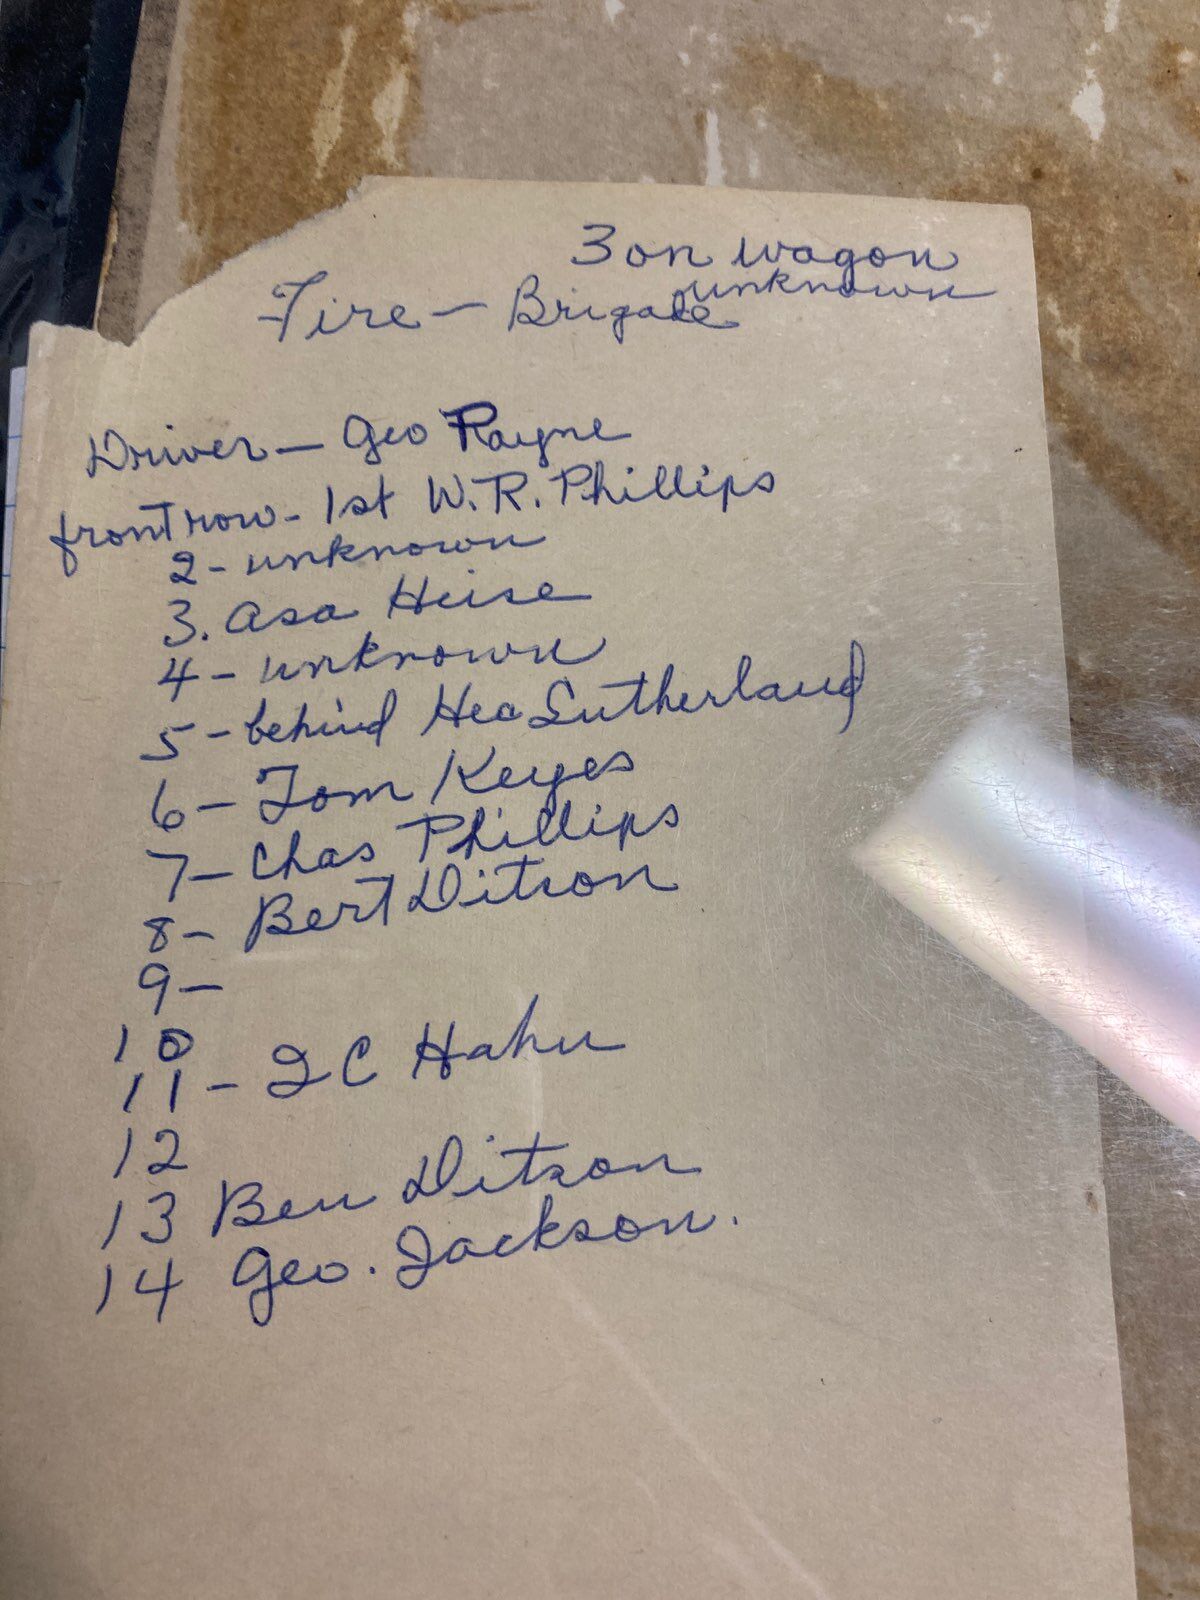 3 on wagon
unknown
Fire - Brigade
Driver - Geo Rayne
front row - 1st W.R. Phillips
2 - unknown
3. Asa Heise
4 - unknown
5 - behind Hec Sutherland
6 - Tom Keyes
7 - Chas Phillips
8 - Bert Ditson
9 -
10
11 - I C Hahn
12
13 Ben Ditson
14 Geo. Jackson.